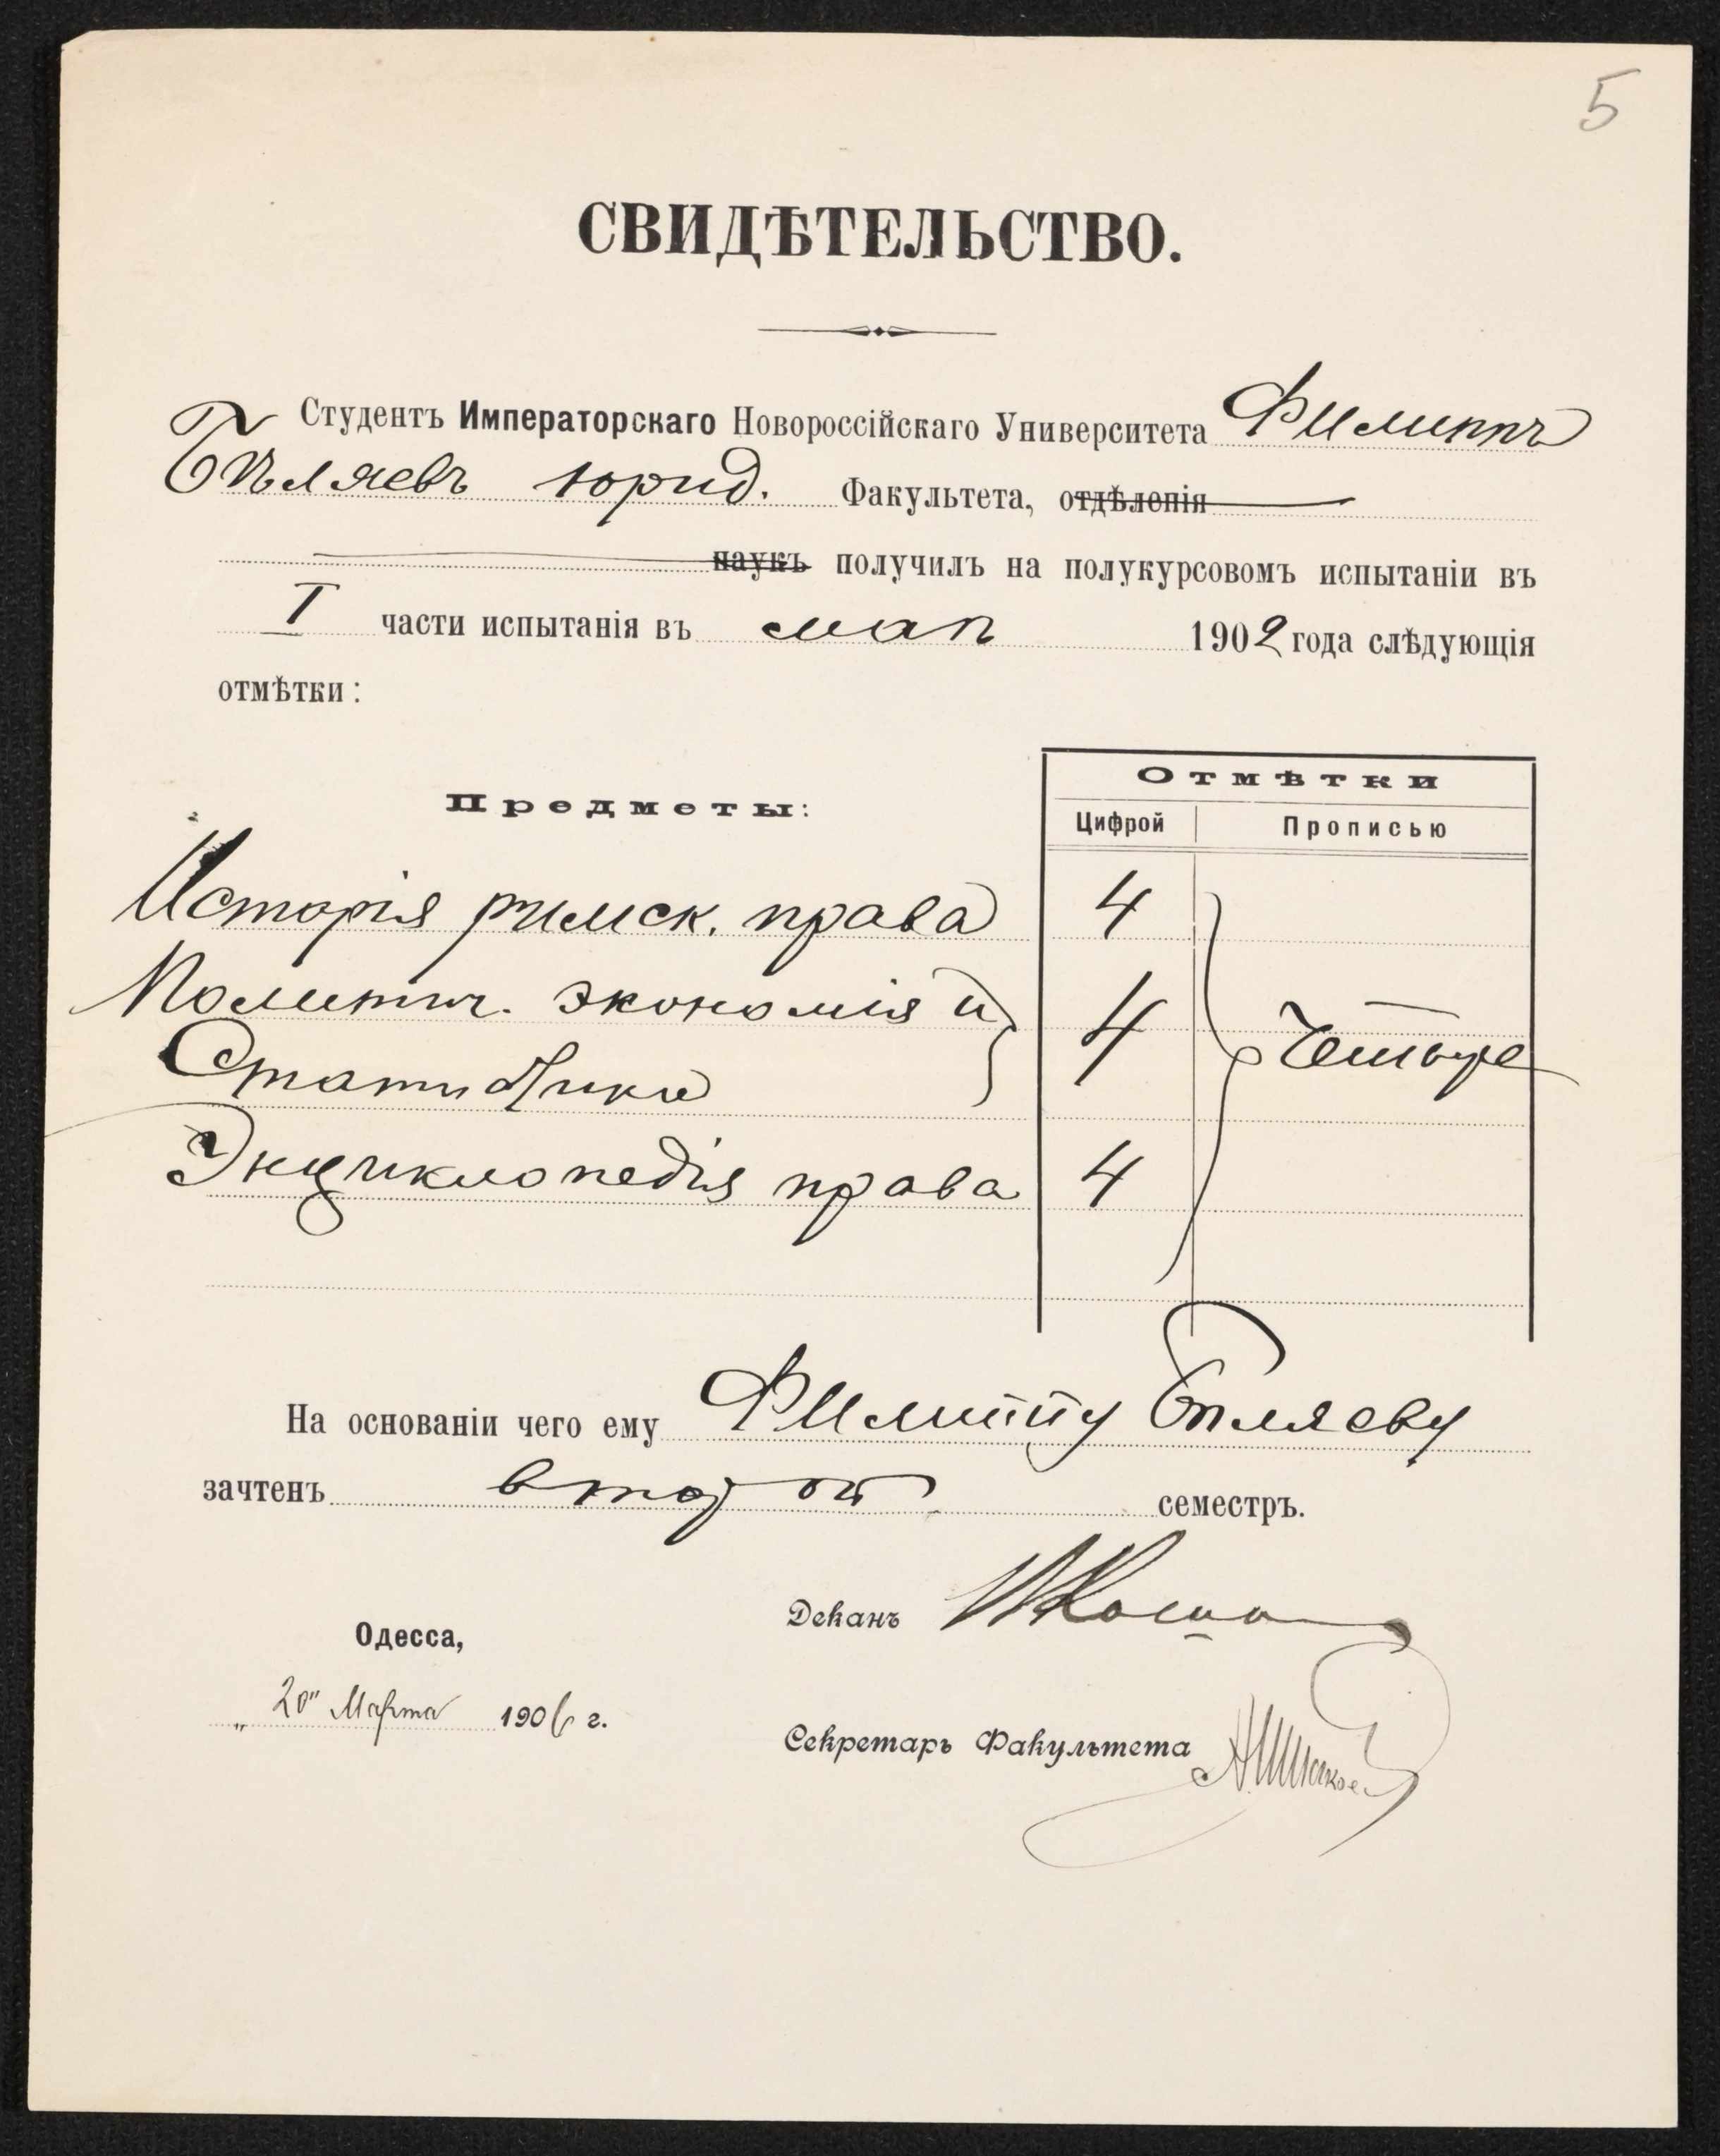 5
СВИДѢТЕЛЬСТВО.
Студентъ Императорскаго Новороссійскаго Университета Филиппъ
Бѣляевъ юрид. Факультета, отдѣленія
наукъ получилъ на полукурсовомъ испытаніи въ
I части испытанія въ маѣ 1902 года слѣдующія
отмѣтки:
Предметы:
Отмѣтки
Цифрой Прописью
Исторія римск. права 4
Политич. экономія и 4 Четыре
Статистика
Энциклопедія права 4
На основаніи чего ему Филиппу Бѣляеву
зачтенъ второй семестръ.
Деканъ
Одесса,
„20" Марта 1906 г.
Секретарь Факультета